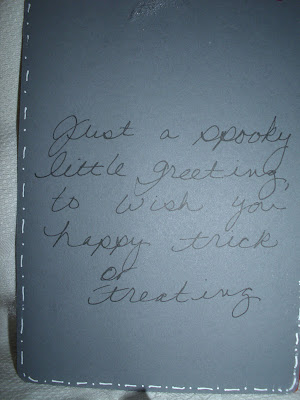 Just a spooky
little greeting,
to wish you
happy trick
or
treating